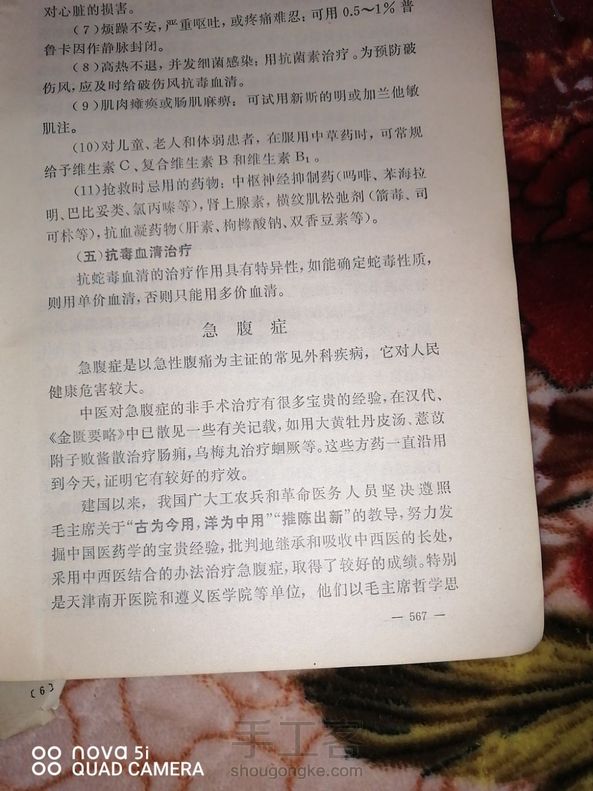 对心脏的损害。
(7)烦躁不安,严重呕吐,或疼痛难忍;可用0.5～1%普
鲁卡因作静脉封闭。
(8)高热不退,并发细菌感染;用抗菌素治疗。为预防破
伤风,应及时给破伤风抗毒血清。
(9)肌肉瘫痪或肠肌麻痹;可试用新斯的明或加兰他敏
肌注。
(10)对儿童、老人和体弱患者,在服用中草药时,可常规
给予维生素C、复合维生素B和维生素B₁。
(11)抢救时忌用的药物:中枢神经抑制药(吗啡、苯海拉
明、巴比妥类、氯丙嗪等),肾上腺素,横纹肌松弛剂(箭毒、司
可林等),抗血凝药物(肝素、枸橼酸钠、双香豆素等)。
(五)抗毒血清治疗
抗蛇毒血清的治疗作用具有特异性,如能确定蛇毒性质,
则用单价血清,否则只能用多价血清。
急腹症
急腹症是以急性腹痛为主证的常见外科疾病,它对人民
健康危害较大。
中医对急腹症的非手术治疗有很多宝贵的经验,在汉代、
《金匮要略》中已散见一些有关记载,如用大黄牡丹皮汤、薏苡
附子败酱散治疗肠痈,乌梅丸治疗蛔厥等。这些方药一直沿用
到今天,证明它有较好的疗效。
建国以来,我国广大工农兵和革命医务人员坚决遵照
毛主席关于“古为今用,洋为中用”“推陈出新”的教导,努力发
掘中国医药学的宝贵经验,批判地继承和吸收中西医的长处,
采用中西医结合的办法治疗急腹症,取得了较好的成绩。特别
是天津南开医院和遵义医学院等单位,他们以毛主席哲学思
— 567 —
〔6〕
nova 5i
QUAD CAMERA
手工客
shougongke.com